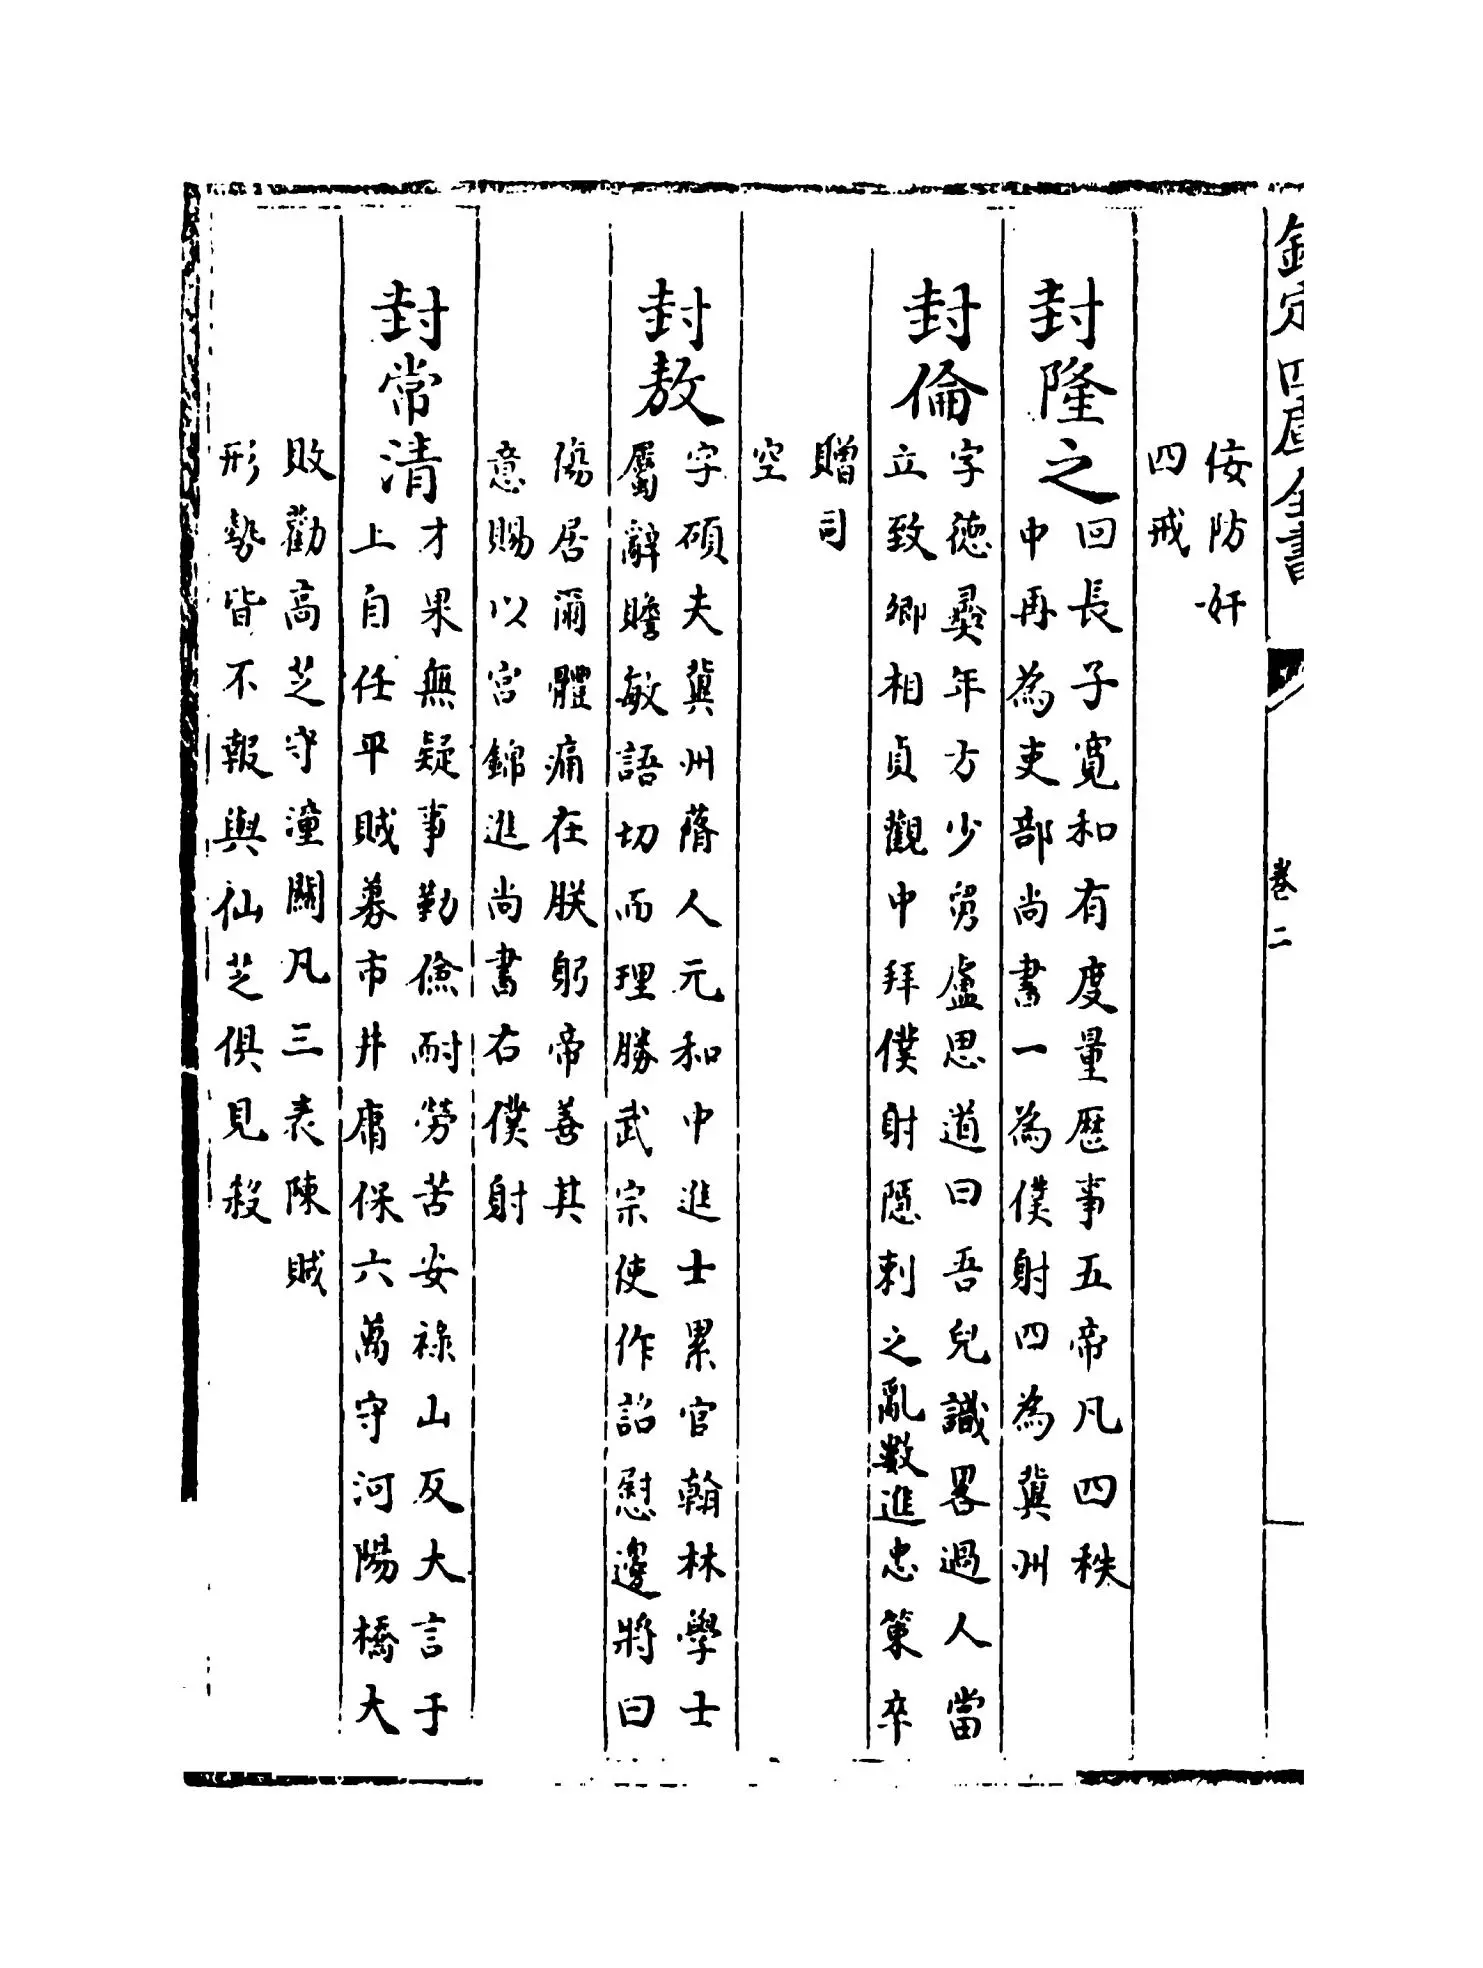 欽定四庫全書
卷二
佞防奸
四戒
封隆之
回長子寛和有度量歴事五帝凡四秩
中再為吏部尚書一為僕射四為冀州
封倫
字徳彞年方少舅盧思道曰吾兒識畧過人當
立致卿相貞觀中拜僕射隱刺之亂數進忠策卒
贈司
空
封敖
字碩夫冀州蓨人元和中進士累官翰林學士
屬辭贍敏語切而理勝武宗使作詔慰邊將曰
傷居爾體痛在朕躬帝善其
意賜以宫錦進尚書右僕射
封常清
才果無疑事勤儉耐勞苦安禄山反大言于
上自任平賊募市井庸保六萬守河陽橋大
敗勸高芝守潼關凡三表陳賊
形勢皆不報與仙芝俱見殺